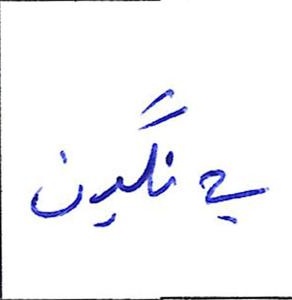 بے نگین